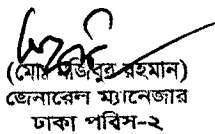 (মোঃ মজিবুর রহমান)
জেনারেল ম্যানেজার
ঢাকা পবিস-২